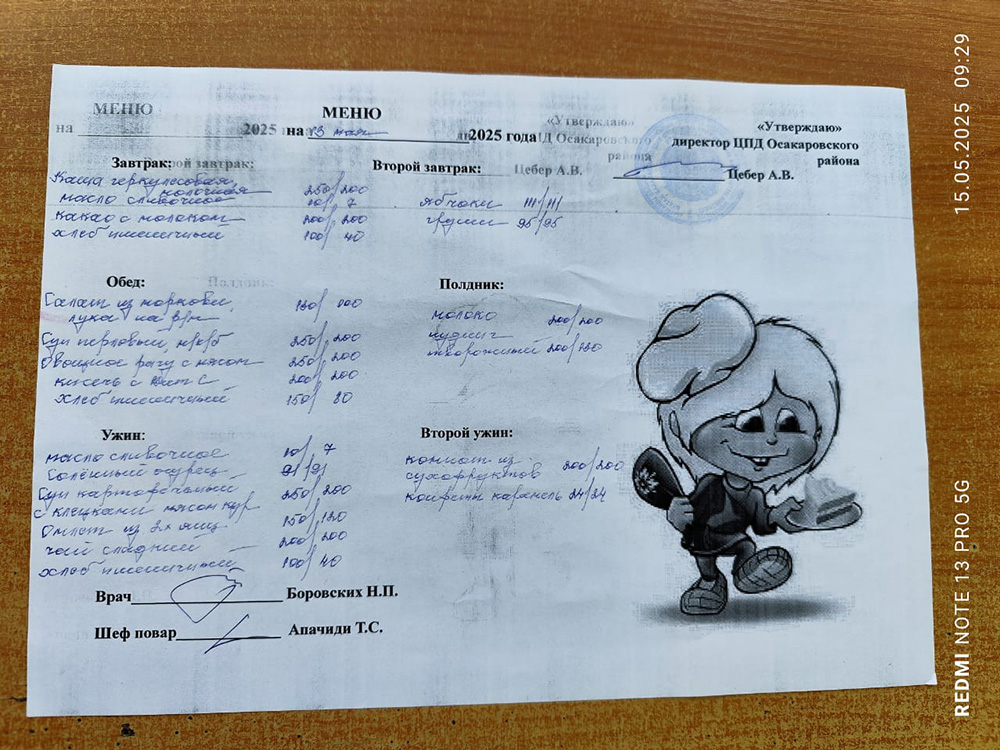 МЕНЮ
МЕНЮ
на 2025 на 13 мая 2025 года
«Утверждаю»
«Утверждаю»
директор ЦПД Осакаровского
района
Цебер А.В.
Цебер А.В.
Завтрак:
Каша геркулесовая
молочная 250/200
масло сливочное 10/7
какао с молоком 200/200
хлеб пшеничный 100/40
Второй завтрак:
яблоки 111/111
груши 95/95
Обед:
Салат из моркови,
лука на р/м 130/100
Суп перловый м/б 250/200
Овощное рагу с мясом 250/200
кисель с вит С 200/200
хлеб пшеничный 150/80
Полдник:
молоко 200/200
творожный 200/120
Ужин:
масло сливочное 10/7
Солёный огурец 91/91
Суп картофельный 250/200
с клецками мясом кур
Омлет из 2х яиц 150/120
чай сладкий 200/200
хлеб пшеничный 100/40
Второй ужин:
компот из
сухофруктов 200/200
конфеты карамель 24/24
Врач Боровских Н.П.
Шеф повар Апачиди Т.С.
REDMI NOTE 13 PRO 5G 15.05.2025 09:29